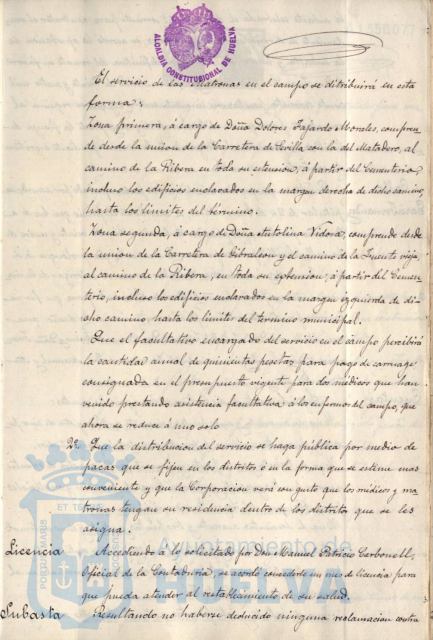 ALCALDIA CONSTITUCIONAL DE HUELVA
El servicio de las Matronas en el campo se ditribuirá en esta
forma:
Zona primera, á cargo de Doña Dolores Fajardo Morales, compren
de desde la union de la Carretera de Sevilla con la del Matadero, al
camino de la Ribera en toda su estension, á partir del Cementerio,
incluso los edificios enclavados en la margen derecha de dicho camino,
hasta los límites del término.
Zona segunda, á cargo de Doña Antolina Vidosa, comprende desde
la union de la Carretera de Gibraleon y el camino de la Fuente vieja,
al camino de la Ribera, en toda su extension, á partir del Cemen-
terio, incluso los edificios enclavados en la margen izquierda de di-
cho camino, hasta los límites del termino municipal.
Que el facultativo encargado del servicio en el campo percibirá
la cantidad anual de quinientas pesetas para pago de carruage
consignada en el presupuesto vigente para dos médicos que han
venido prestando asistencia facultativa á los enfermos del campo, que
ahora se reduce á uno solo
2º Que la distribucion del servicio se haga pública por medio de
pacas que se fijen en los distritos ó en la forma que se estime mas
conveniente y que la Corporacion verá con gusto que los médicos y ma
tronas tengan su residencia dentro de los distritos que se les
asigna.
Licencia Accediendo á lo solicitado por Don Manuel Patricio Carbonell,
Oficial de la Contaduria, se acordó concederle un mes de licencia para
que pueda atender al restablecimiento de su salud.
Subasta Resultando no haberse deducido ninguna reclamacion contra
Ayuntamiento de
HUELVA
PORTUS MARIS
ET TE